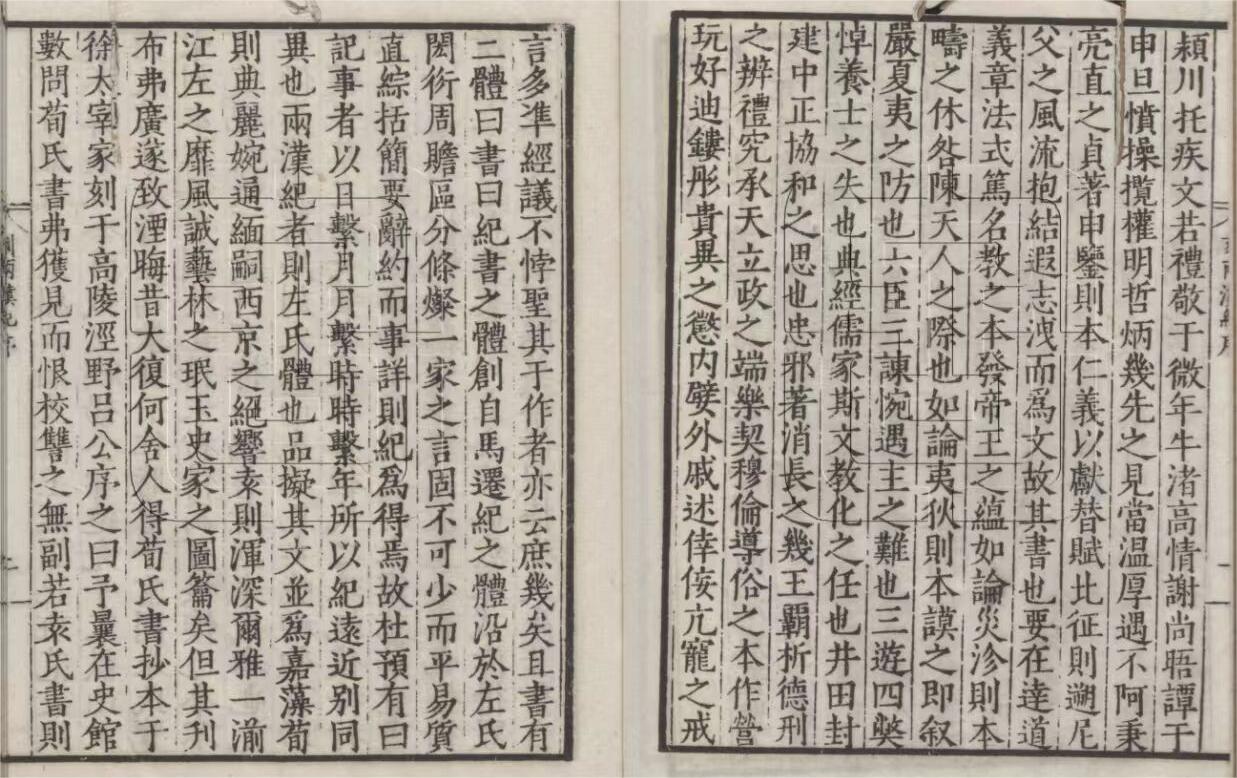 潁川托疾文若禮敬于微年牛渚高情謝尚晤譚于
申旦憤操攬權明哲炳幾先之見當温厚遇不阿秉
亮直之貞著申鑒則本仁義以獻替賦北征則遡尼
父之風流抱結遐志洩而爲文故其書也要在達道
義章法式篤名教之本發帝王之蘊如論災沴則本
疇之休咎陳天人之際也如論夷狄則本謨之即叙
嚴夏夷之防也六臣三諫惋遇主之難也三遊四獘
悼養士之失也典經儒家斯文教化之任也井田封
建中正協和之思也忠邪著消長之幾王覇析德刑
之辨禮究承天立政之端樂契穆倫導俗之本作營
玩好迪鏤彤貴異之懲内嬖外戚述倖侫亢寵之戒
言多凖經議不悖聖其于作者亦云庶幾矣且書有
二體曰書曰紀書之體創自馬遷紀之體沿於左氏
閎衍周贍區分條燦一家之言固不可少而平易質
直綜括簡要辭約而事詳則紀爲得焉故杜預有曰
記事者以日繫月月繫時時繫年所以紀遠近别同
異也兩漢紀者則左氏體也品擬其文並爲嘉藻荀
則典麗婉通緬嗣西京之絕響袁則渾深爾雅一湔
江左之靡風誠藝林之珉玉史家之圖籥矣但其刊
布弗廣遂致湮晦昔大復何舍人得荀氏書抄本于
徐太宰家刻于高陵涇野吕公序之曰予曩在史館
數問荀氏書弗獲見而恨校讐之無副若袁氏書則